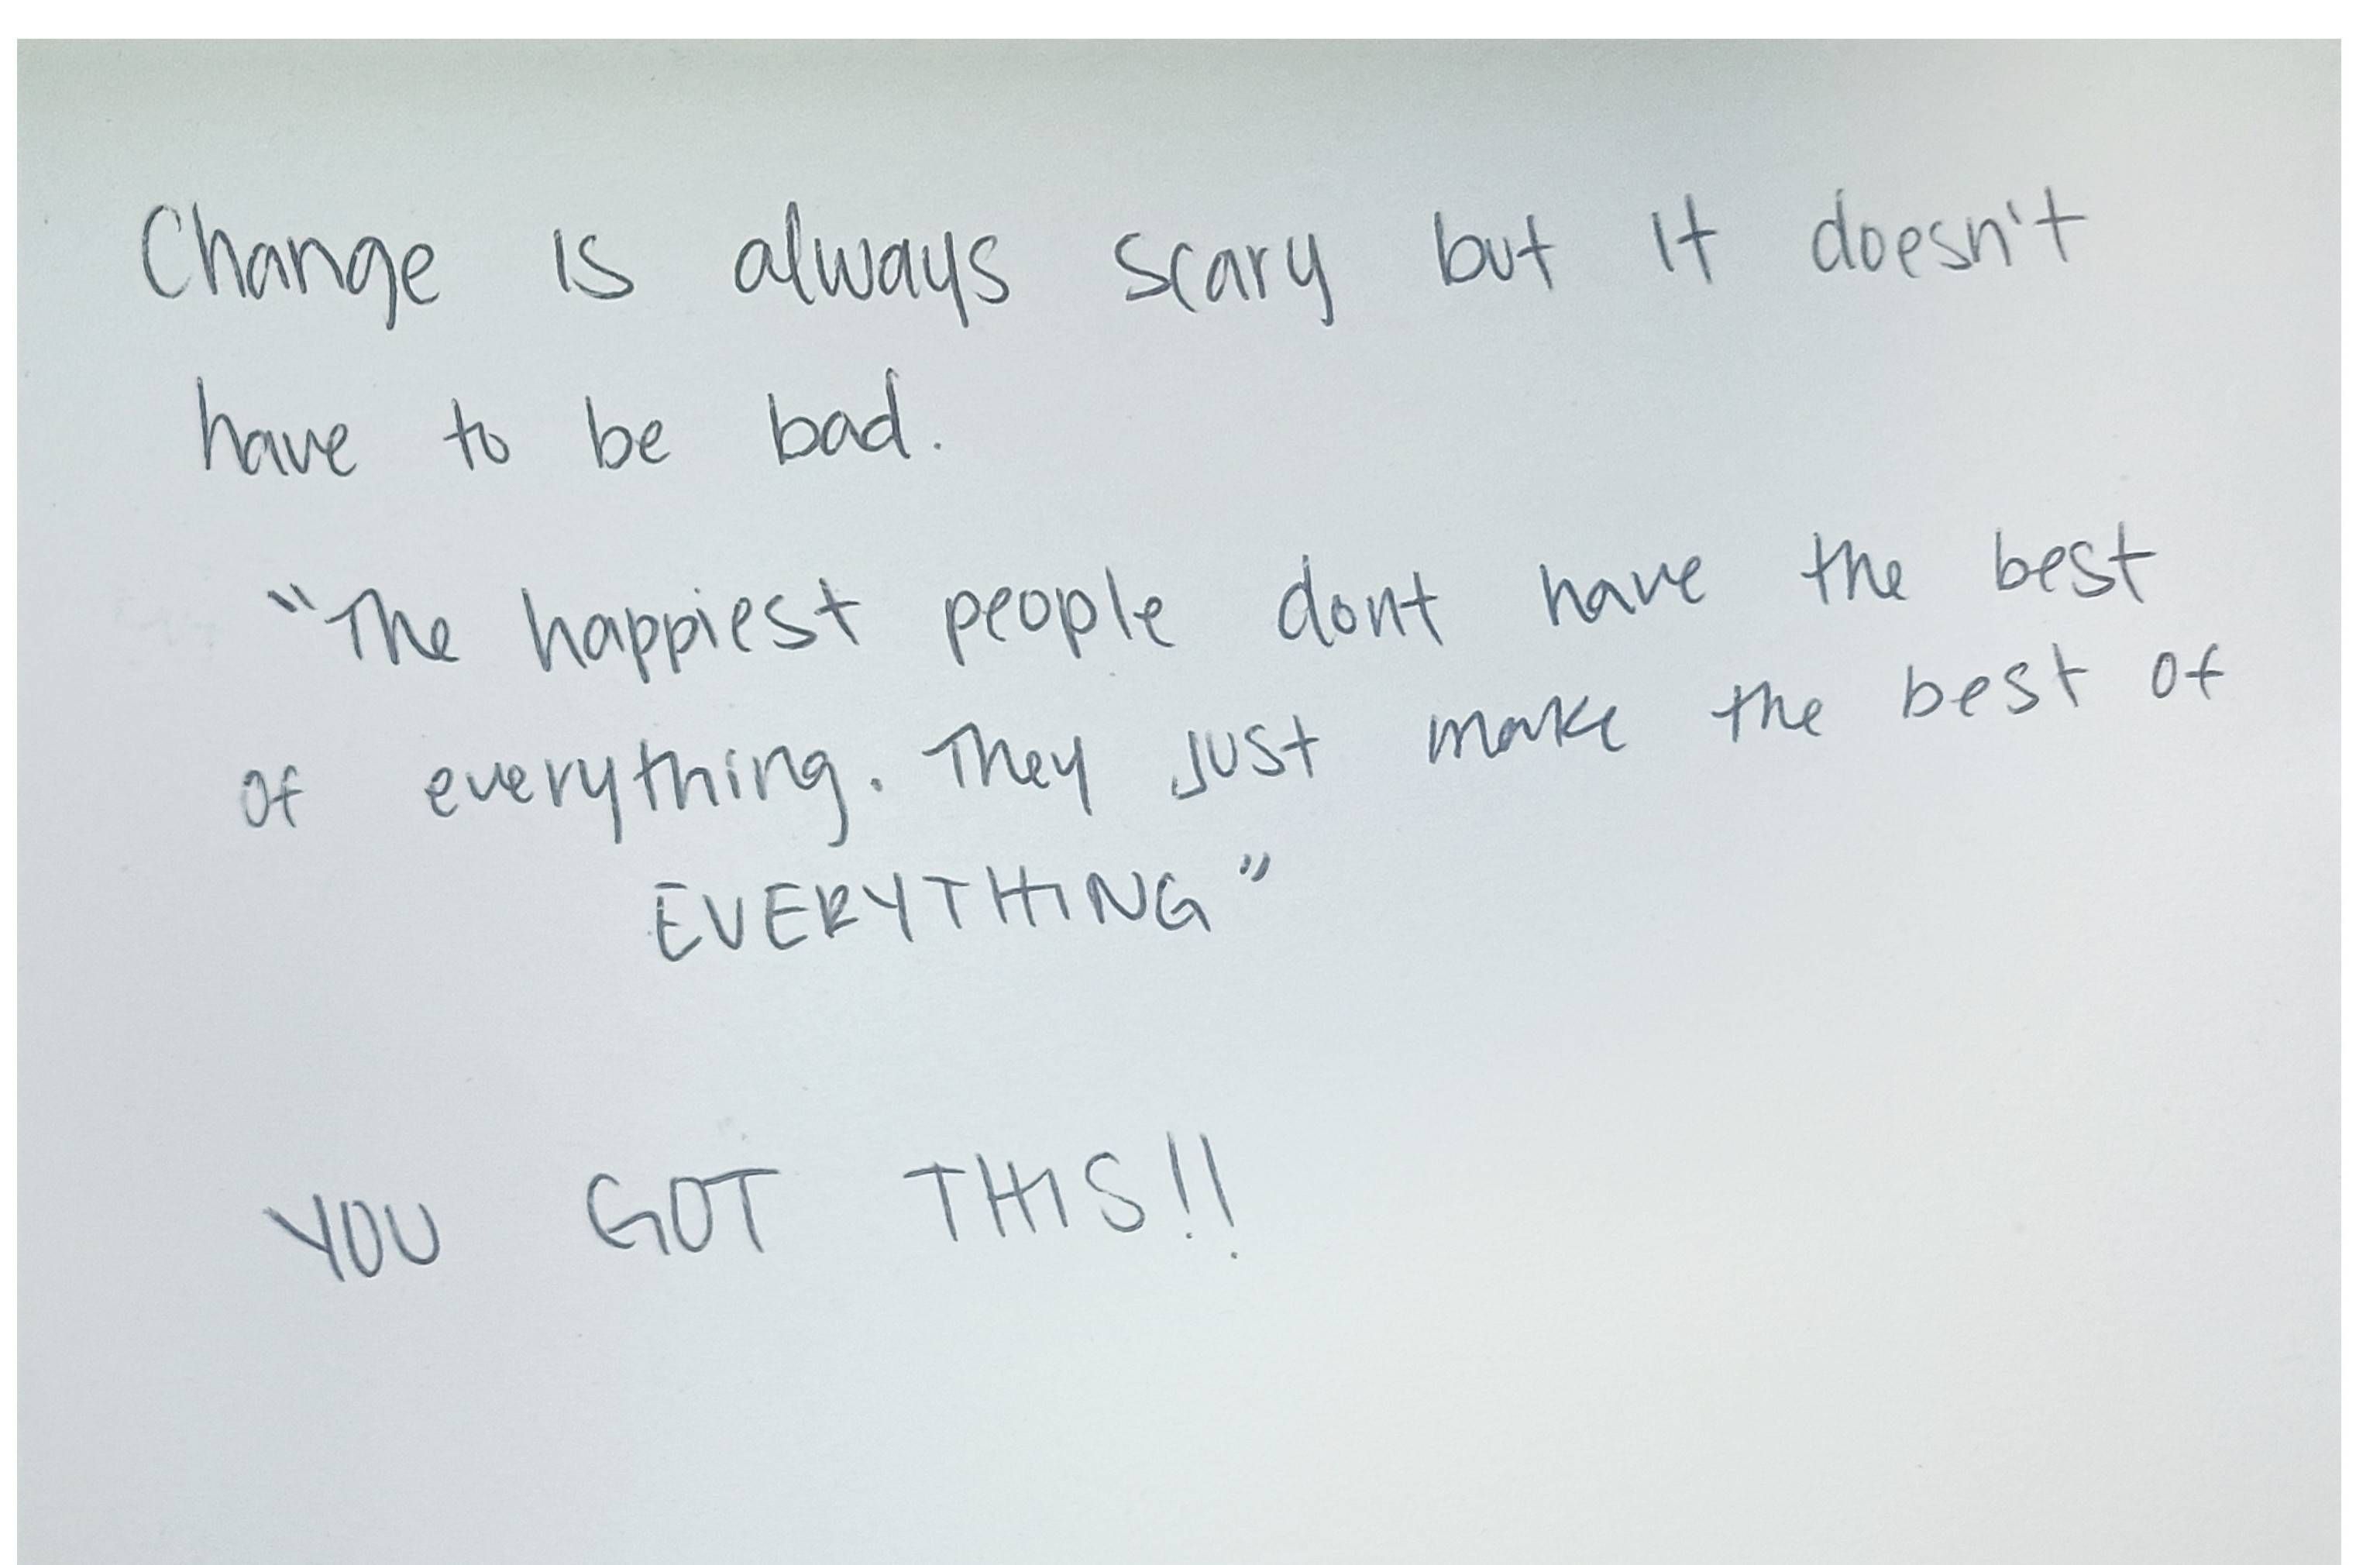 Change is always scary but it doesn't
have to be bad.
"The happiest people dont have the best
of everything. They just make the best of
EVERYTHING"
YOU GOT THIS!!